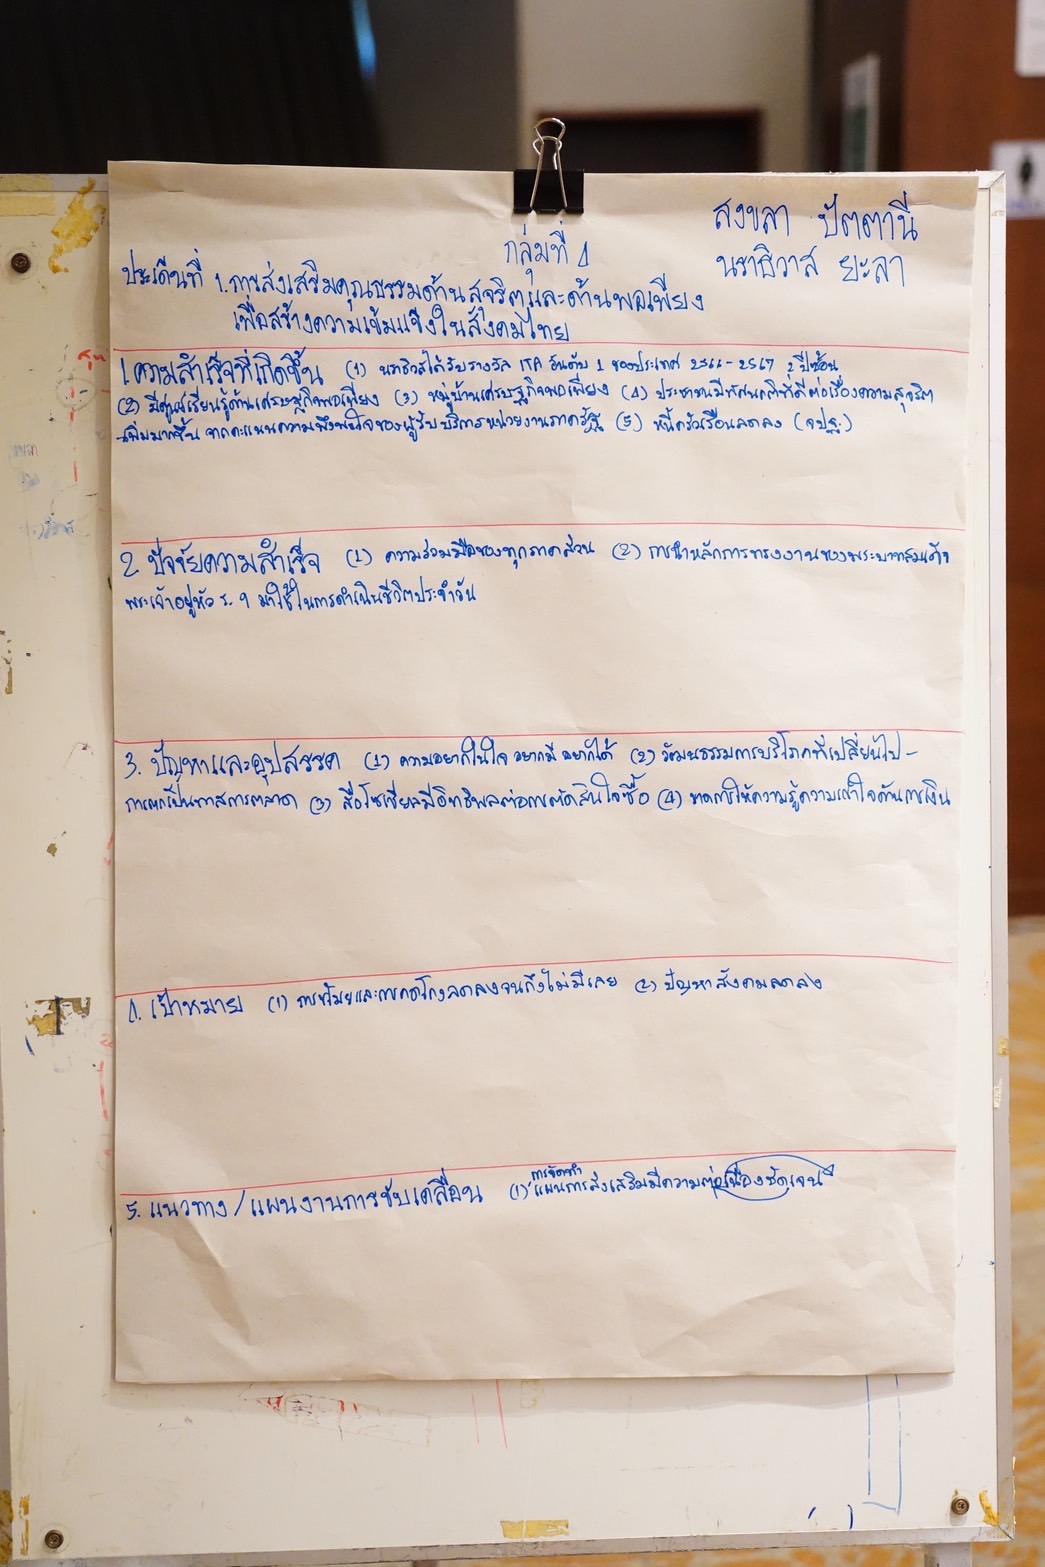 สงขลา ปัตตานี
กลุ่มที่ 1
นราธิวาส ยะลา
ประเด็นที่ 1. การส่งเสริมคุณธรรมด้านสุจริตและด้านพอเพียง
เพื่อสร้างความเข้มแข็งในสังคมไทย
1. ความสำเร็จที่เกิดขึ้น (1) นราธิวาสได้รับรางวัล ITA อันดับ 1 ของประเทศ 2566-2567 2 ปีซ้อน
(2) มีศูนย์เรียนรู้ด้านเศรษฐกิจพอเพียง (3) หมู่บ้านเศรษฐกิจพอเพียง (4) ประชาชนมีทัศนคติที่ดีต่อเรื่องความสุจริต
เพิ่มมากขึ้น จากคะแนนความพึงพอใจของผู้รับบริการหน่วยงานภาครัฐ (5) หนี้ครัวเรือนลดลง (จปฐ.)
2. ปัจจัยความสำเร็จ (1) ความร่วมมือของทุกภาคส่วน (2) การนำหลักการทรงงานของพระบาทสมเด็จ
พระเจ้าอยู่หัว ร. 9 มาใช้ในการดำเนินชีวิตประจำวัน
3. ปัญหาและอุปสรรค (1) ความอยากในใจ อยากมี อยากได้ (2) วัฒนธรรมการบริโภคที่เปลี่ยนไป -
การตกเป็นทาสการตลาด (3) สื่อโซเชียลมีอิทธิพลต่อการตัดสินใจซื้อ (4) ขาดการให้ความรู้ความเข้าใจด้านการเงิน
4. เป้าหมาย (1) การขโมยและการคดโกงลดลงจนถึงไม่มีเลย (2) ปัญหาสังคมลดลง
การจัดทำ
5. แนวทาง/แผนงานการขับเคลื่อน (1) แผนการส่งเสริมมีความต่อเนื่องชัดเจน